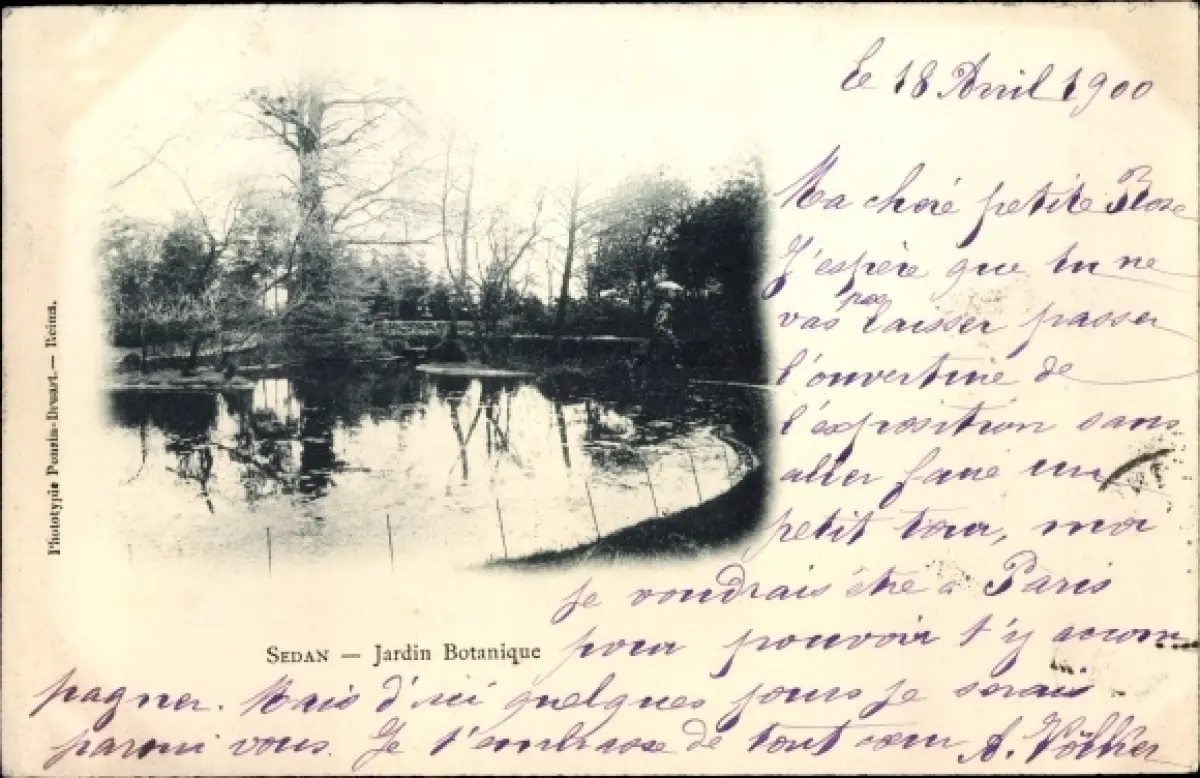 le 18 Avril 1900
Ma chère petite Rose
J'espère que tu ne
vas pas laisser passer
l'ouverture de
l'exposition sans
aller faire un
petit tour, moi
je voudrais être à Paris
pour pouvoir t'y accom
pagner. Mais d'ici quelques jours je serais
parmi vous. Je t'embrasse de tout cœur A.
SEDAN — Jardin Botanique
Phototypie Ponsin-Druart. — Reims.